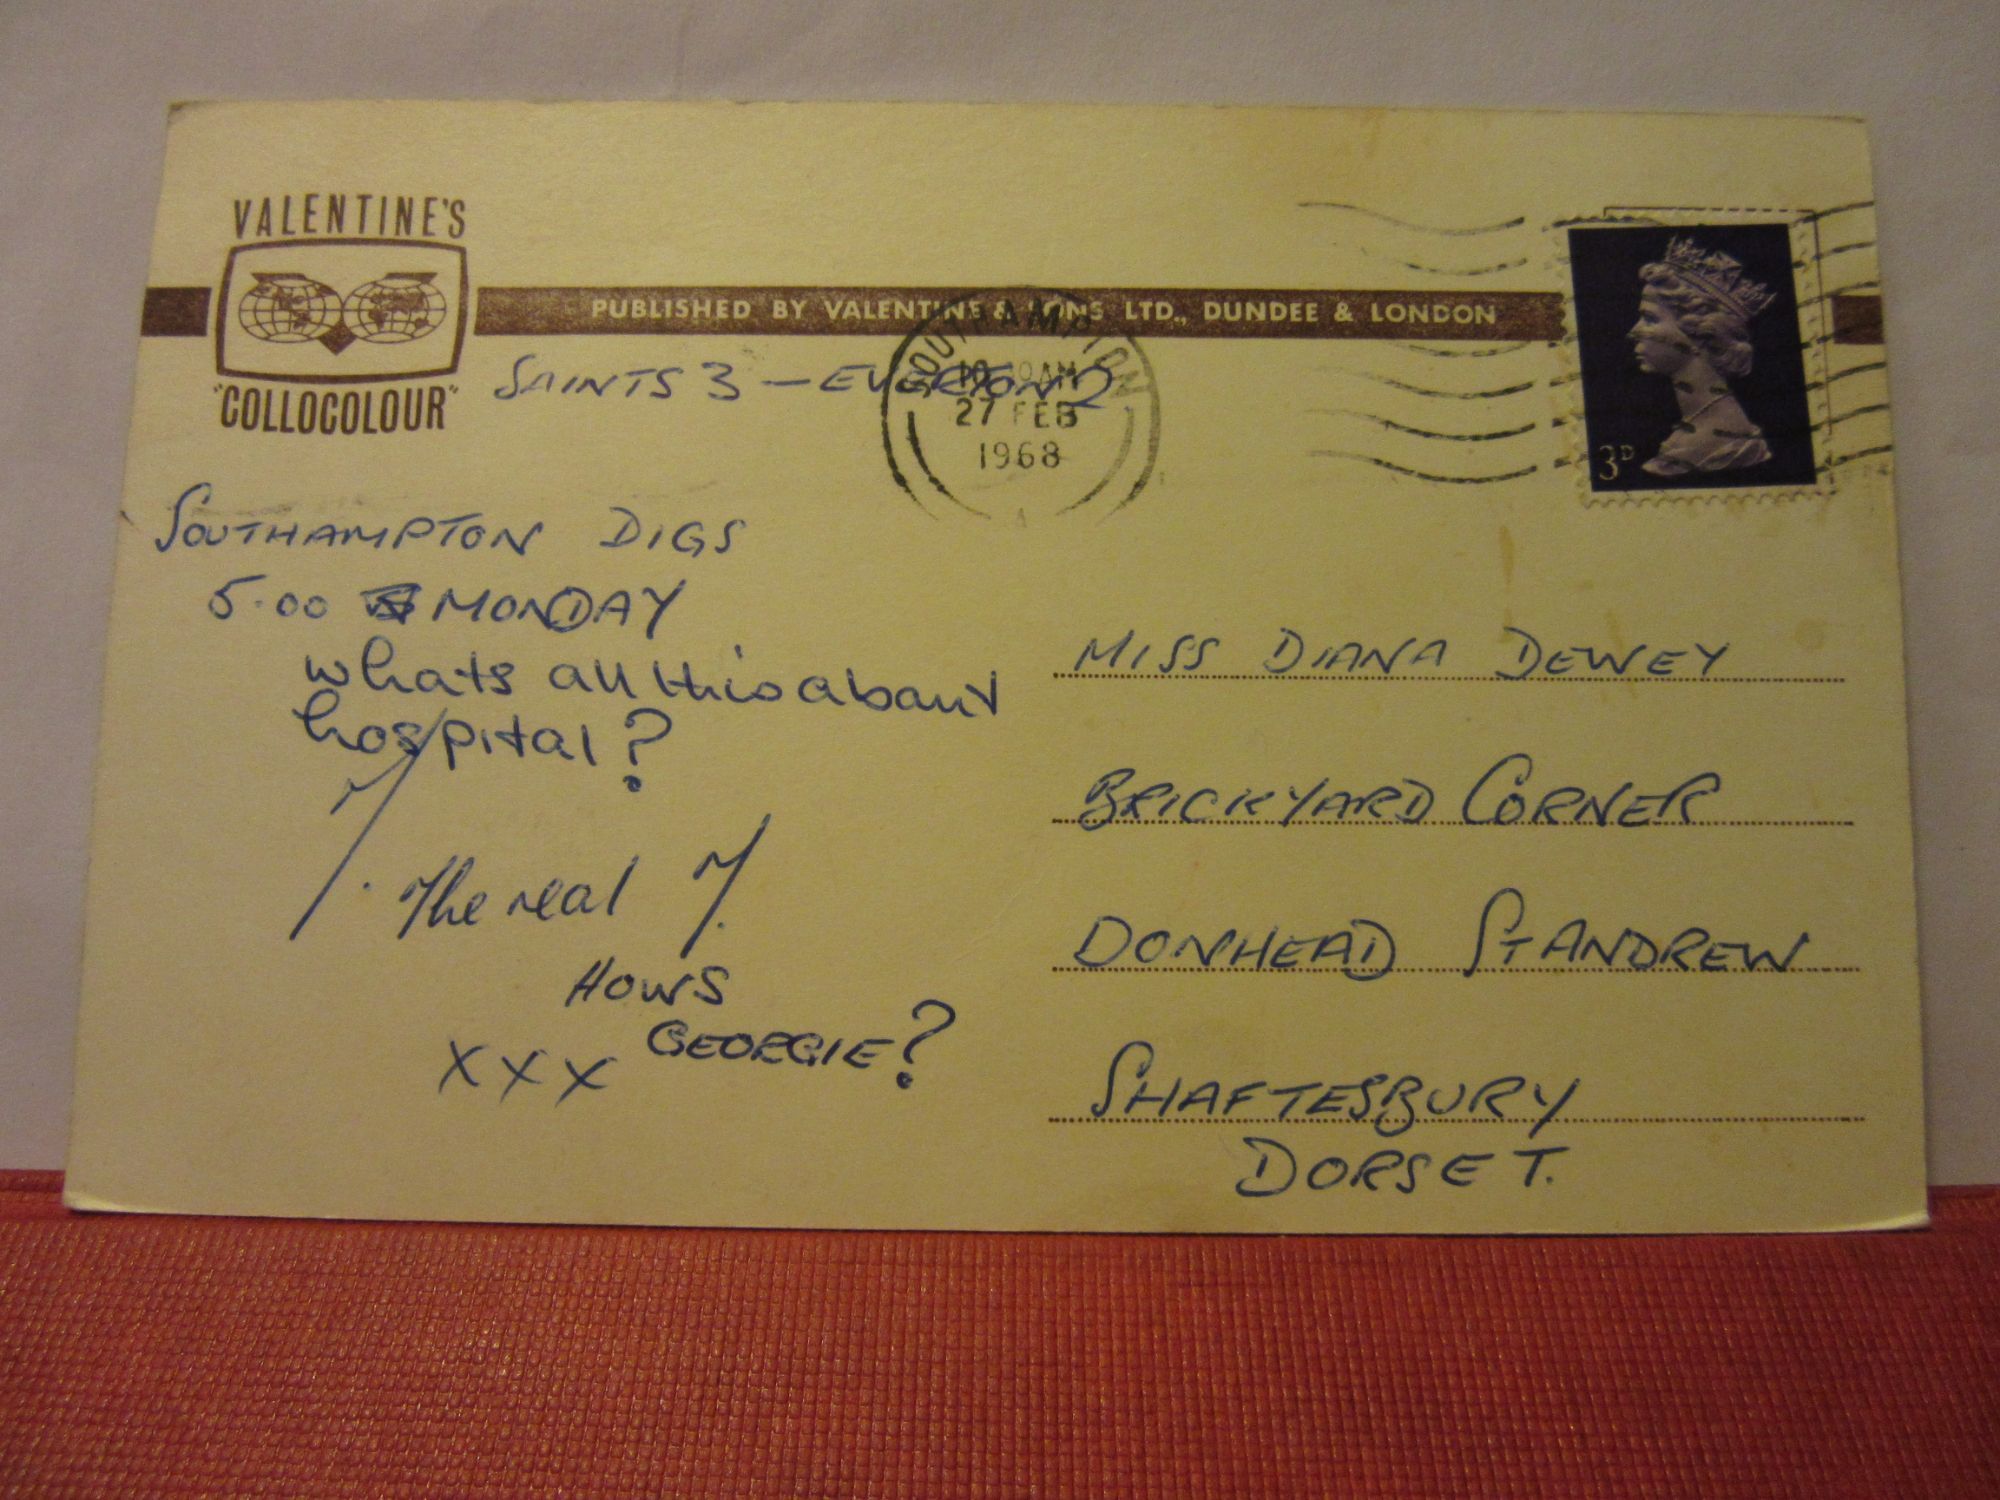 VALENTINE'S
"COLLOCOLOUR"
PUBLISHED BY VALENTINE & SONS LTD., DUNDEE & LONDON
SAINTS 3 — EVERTON 2
SOUTHAMPTON
AM
27 FEB
1968
3D
SOUTHAMPTON DIGS
5.00 MONDAY
whats all this about
hospital?
The real
HOWS
GEORGIE?
XXX
MISS DIANA DEWEY
BRICKYARD CORNER
DONHEAD ST ANDREW
SHAFTESBURY
DORSET.